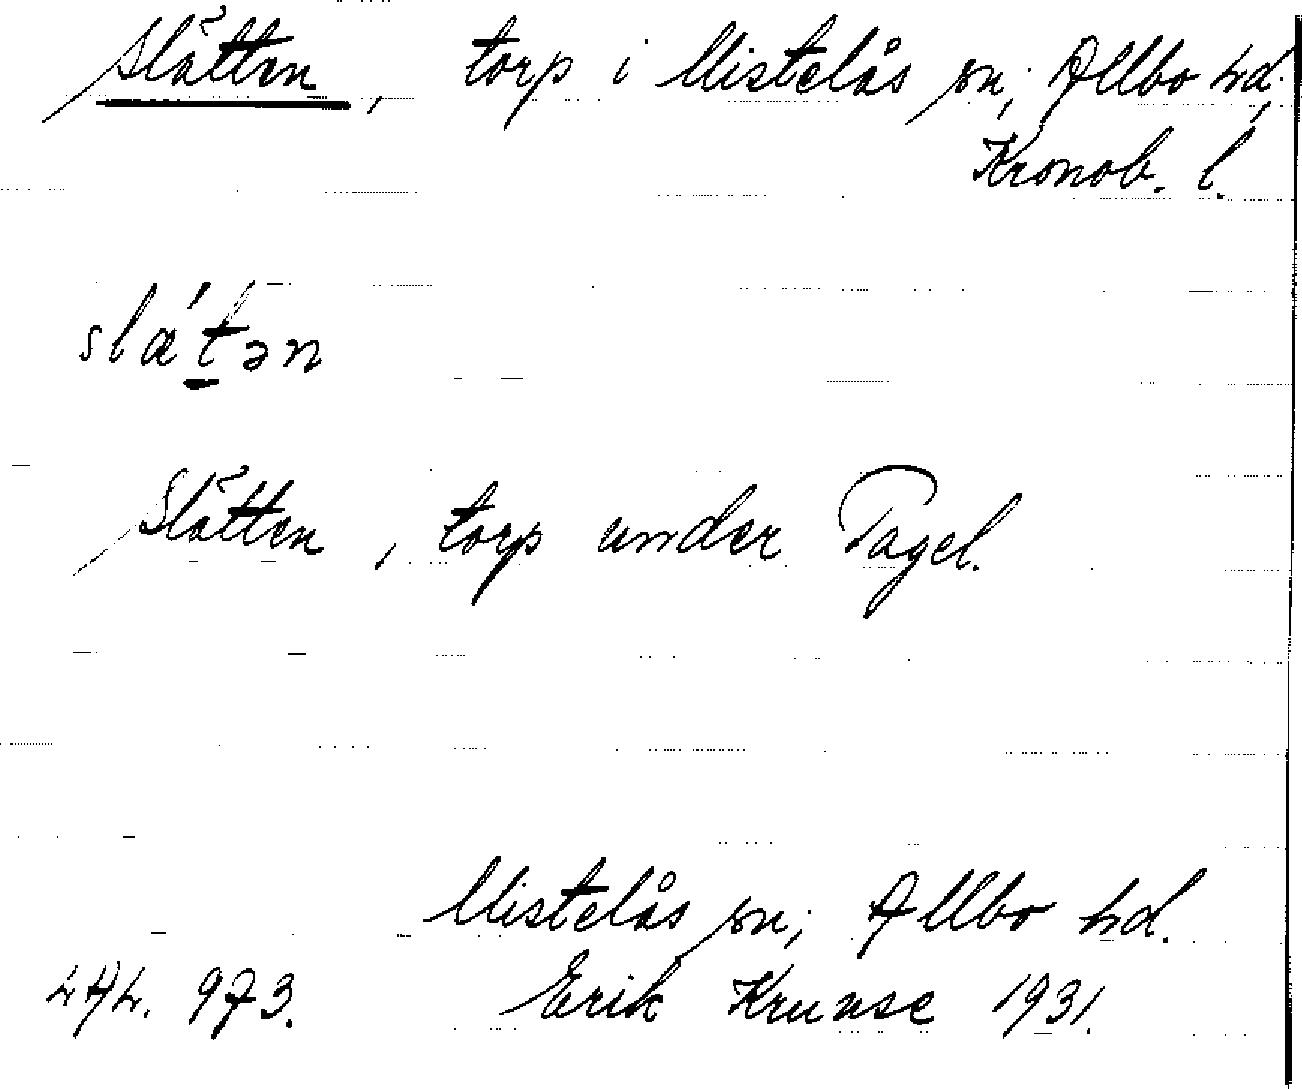 Slätten, torp i Mistelås sn, Allbo hd,
Kronob. l.
slæ´t̲ən
Slätten, torp under Tagel.
Mistelås sn, Allbo hd.
973. Erik Krunse 1931.